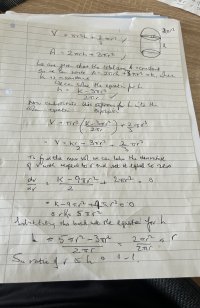 V = πr²h + 2/3 πr³
A = 2πrh + 3πr²
We are given that the total area is constant
so we can write A = 2πrh + 3πr² = k, where
k is a constant
the equation for h
h = k - 3πr² / 2πr
Now substitute this expression for h into the
equation
V = πr² (k - 3πr² / 2πr) + 2/3 πr³
V = kr - 3πr³ / 2 + 2/3 πr³
To find the max vol we can take the derivative
of V with respect to r and set it equal to zero
dv/dr = k - 9πr² / 2 + 2πr² = 0
= k - 9πr² + 4πr² = 0
or k = 5πr²
Substituting this back into the equation for h
h = 5πr² - 3πr² / 2πr = 2πr² / 2πr = r
So ratio of r : h is 1 : 1